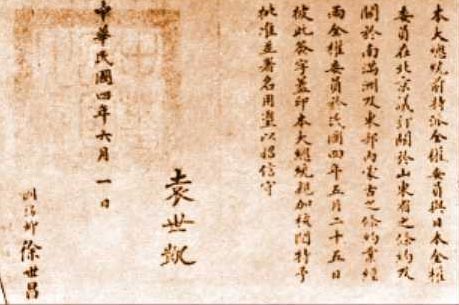 本大總統前特派全權委員與日本全權
委員在北京議訂關於山東省之條約及
關於南滿洲及東部內蒙古之條約業經
兩全權委員於民國四年五月二十五日
彼此簽字蓋印本大總統親加核閱特予
批准並署名用璽以昭信守
袁世凱
中華民國四年六月一日
國務卿 徐世昌